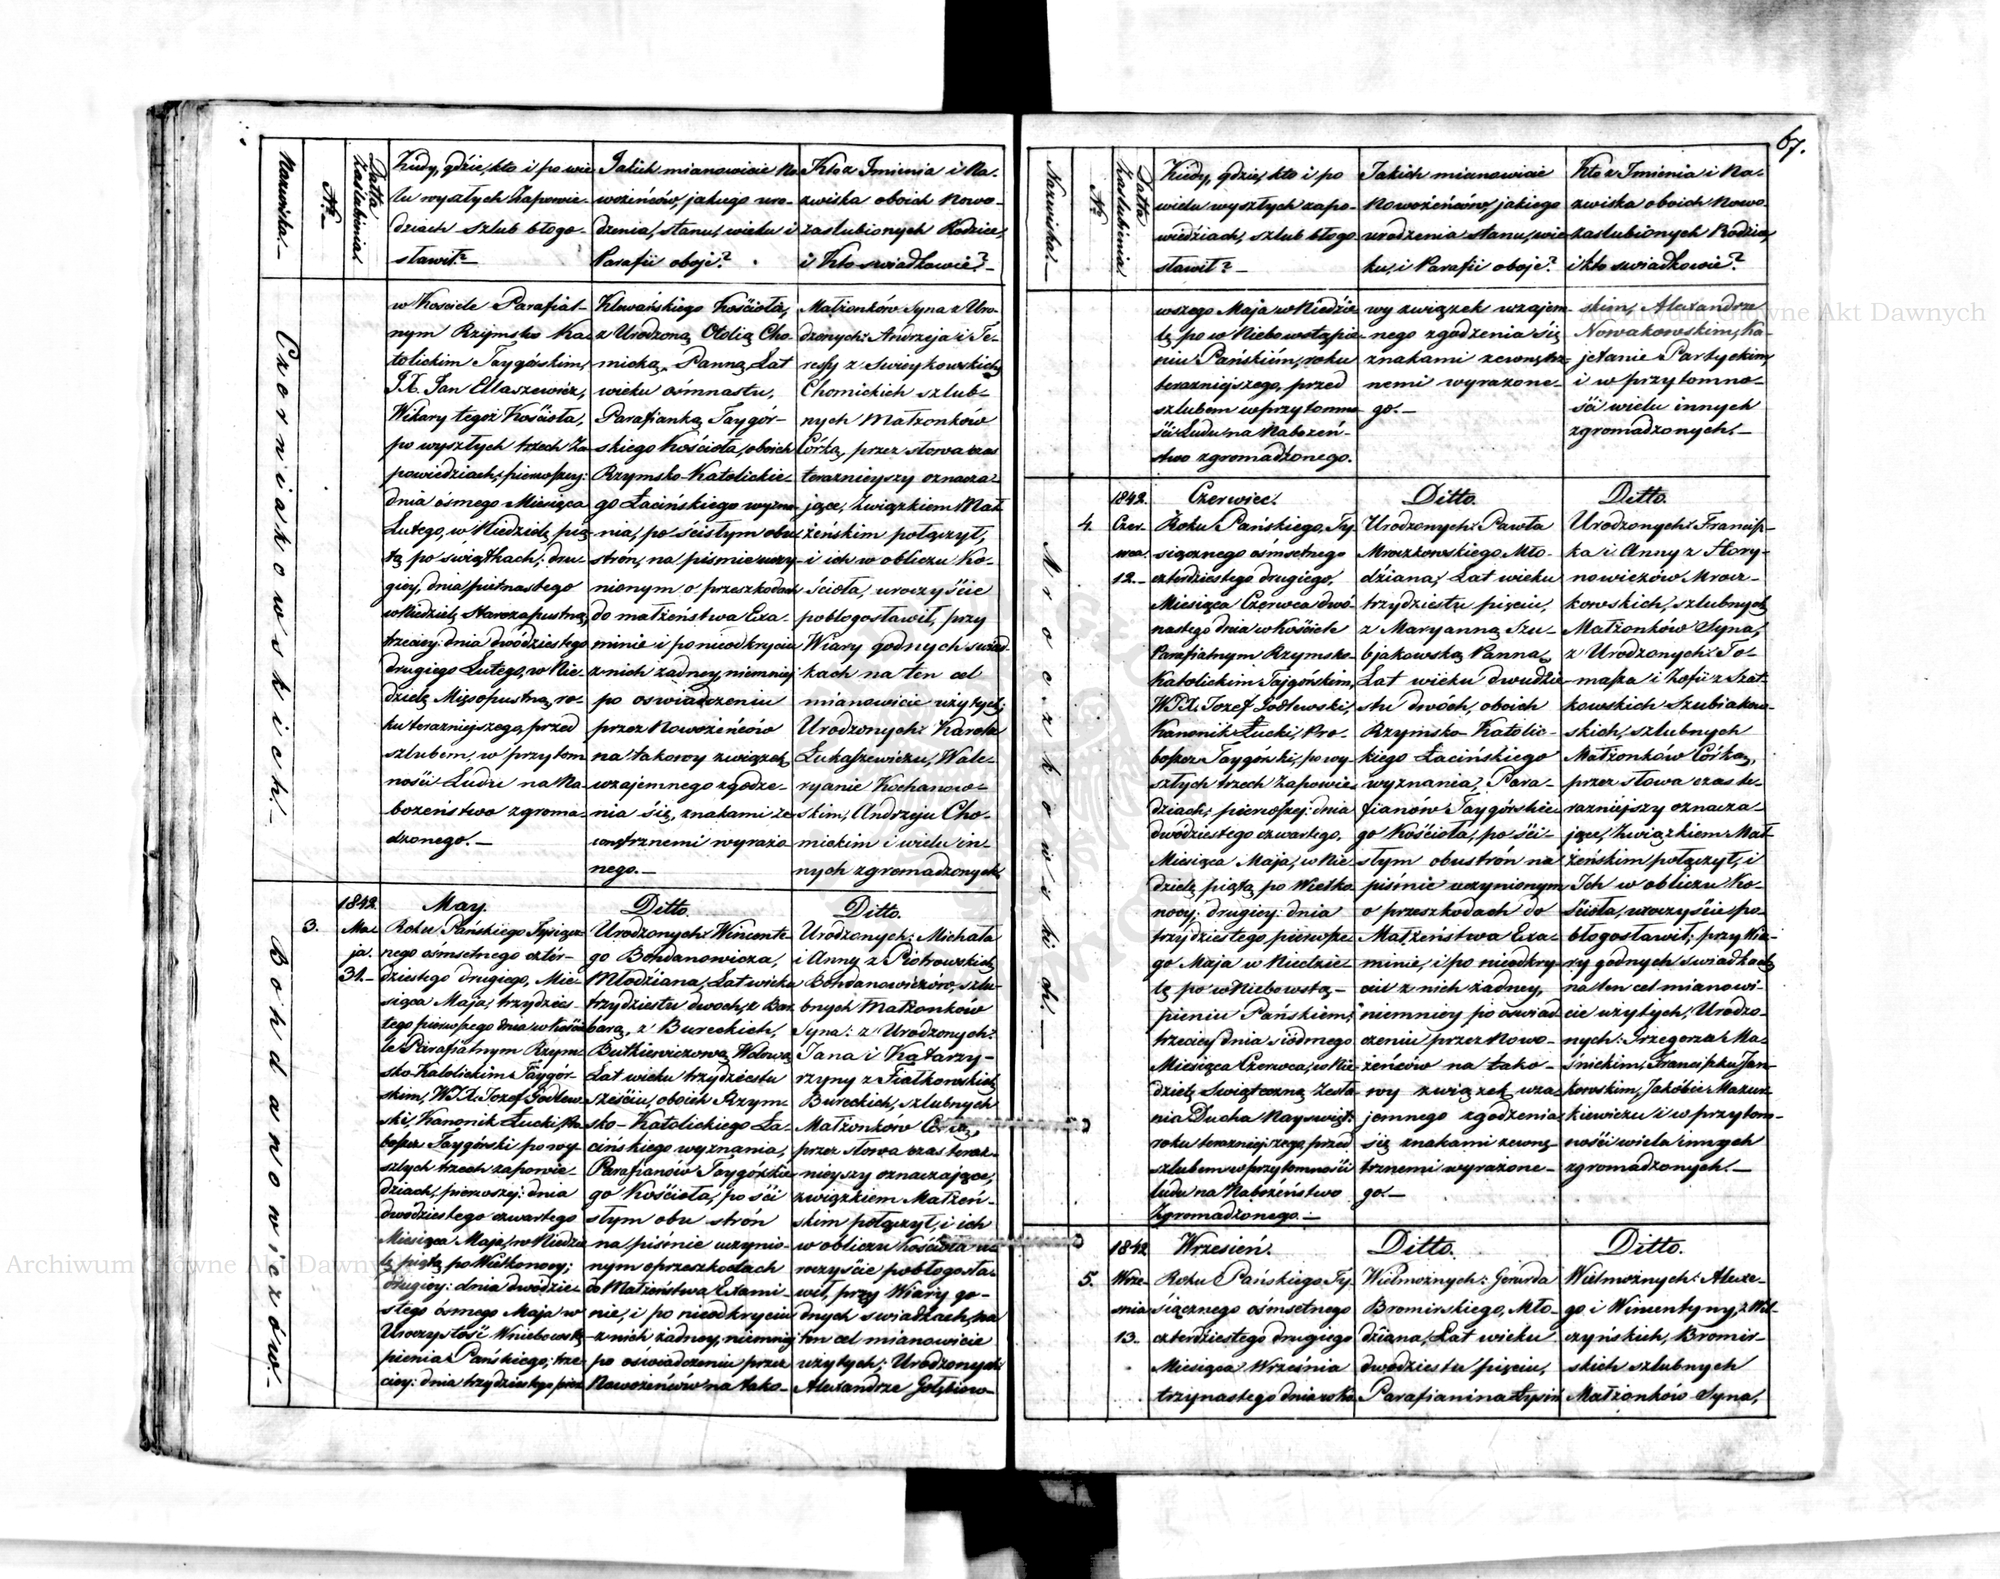 Nazwiska.
No
Datta Zaslubienia.
Kiedy, gdzie, kto i po wie
lu wyszłych Zapowie-
dziach szlub błogo-
sławił?
Jakich mianowicie No
wożeńców, jakiego uro-
dzenia, stanu, wieku i
Parafii oboje?
Kto z Imienia i Na-
zwiska oboich Nowo-
zaslubionych Rodzice,
i Kto swiadkowie?
Czerniakowskich.
w Kosciele Parafial-
nym Rzymsko Ka-
tolickim Taygórskim,
J.X. Jan Eliaszewicz,
Wikary tegoż Kościoła,
po wyszłych trzech Za-
powiedziach; pierwszey:
dnia ósmego Miesiąca
Lutego, w Niedzielę pią-
tą po świątkach; dru-
giey, dnia pietnastego
w Niedzielę Starozapustną,
trzeciey: dnia dwódziestego
drugiego Lutego, w Nie-
dzielę Mięsopustną, ro-
ku terazniejszego, przed
szlubem, w przytom
ności Ludu na Na-
bożeństwo zgroma-
dzonego.
Klewańskiego Kościoła,
z Urodzoną Otolią Cho-
micką, Panną, Lat
wieku ośmnastu,
Parafianką Taygór-
skiego Kościoła, oboich
Rzymsko-Katolickie-
go Łacińskiego wyzna-
nia, po ścisłym obu
strón, na piśmie uczy-
nionym o przeszkodach
do małżeństwa Exa-
minie i po nieodkryciu
z nich żadney, niemniey
po oswiadczeniu
przez Nowożeńców
na takowy związek
wzajemnego zgodze-
nia się, znakami ze
wnętrznemi wyrażo
nego.
Małżonków Syna z Uro-
dzonych: Andrzeja i Te-
ressy z Swieykowskich
Chomickich szlub-
nych Małżonków
Córką, przez słowa czas
teraznieyszy oznacza-
jące, Związkiem Mał
żeńskim połączył,
i ich w obliczu Ko-
ścioła, uroczyście
pobłogosławił, przy
Wiary godnych swiad-
kach na ten cel
mianowicie użytych;
Urodzonych: Karolu
Łukaszewiczu, Wale-
ryanie Kochanow-
skim, Andrzeju Cho-
mickim i wielu in-
nych zgromadzonych.
Bohdanowiczów.
3.
1842.
Ma-
ja.
31.
May.
Roku Pańskiego Tysiącz-
nego ósmsetnego cztér-
dziestego drugiego, Mie-
siąca Maja, trzydzies-
tego pierwszego dnia w Kości
ele Parafialnym Rzym-
sko-Katolickim Taygór-
skim, W.J.X. Jozef Godlew-
ski, Kanonik Łucki, Pro-
boszcz Taygórski po wy-
szłych trzech zapowie-
dziach, pierwszej: dnia
dwodziestego czwartego
Miesiąca Maja, w Niedzie
lę piątą po Wielkonocy;
drugiey: dnia dwodzie-
stego ósmego Maja w
Uroczystość Wniebowstą-
pienia Pańskiego; trze-
ciey: dnia trzydziestego pier
Ditto.
Urodzonych: Wincente-
go Bohdanowicza,
Młodziana, Lat wieku
trzydziestu dwoch, z Bar
barą, z Bureckich,
Butkiewiczową Wdową
Lat wieku trzydziestu
sześciu, oboich Rzym-
sko-Katolickiego Ła-
cińskiego wyznania,
Parafianów Taygórskie
go Kościoła, po ści
słym obu strón
na piśmie uczynio-
nym o przeszkodach
do Małżeństwa Exami-
nie, i po nieodkryciu
z nich żadney, niemniey
po oświadczeniu przez
Nowożeńców na tako-
Ditto.
Urodzonych: Michała
i Anny z Piotrowskich
Bohdanowiczów, szlu-
bnych Małżonków
Syna: z Urodzonych:
Jana i Katarzy-
rzyny z Fiałkowskich
Bureckich, szlubnych
Małżonków Córką,
przez słowa czas teraz-
nieyszy oznaczające,
związkiem Małżeń-
skim połączył, i ich
w obliczu Kościoła u-
roczyście pobłogosła-
wił, przy Wiary go-
dnych swiadkach, na
ten cel mianowicie
użytych; Urodzonych:
Alexandrze Gołębiow-
67.
Nazwiska.
No
Datta Zaslubinia.
Kiedy, gdzie, kto i po
wielu wyszłych zapo-
wiedziach, szlub błogo
sławił?
Jakich mianowicie
Nowożeńców, jakiego
urodzenia stanu, wie-
ku, i Parafii oboje?
Kto z Imienia i Na-
zwiska oboich Nowo
zaslubionych Rodzice,
i kto swiadkowie?
wszego Maja w Niedzie
lę po w Niebowstąpie
niu Pańskiém, roku
terazniejszego, przed
szlubem w przytomno
ści Ludu na Nabożeń-
stwo zgromadzonego.
wy związek wzajem-
nego zgodzenia się
znakami zewnętrz
nemi wyrażone-
go.
skim, Alexandrze
Nowakowskim, Ka-
jetanie Partyckim,
i w przytomno-
ści wielu innych
zgromadzonych.
Mroczkowskich.
4.
1842.
Czer-
wca.
12.
Czerwiec.
Roku Pańskiego, Ty-
siącznego ósmsetnego
czterdziestego drugiego,
Miesiąca Czerwca dwó-
nastego dnia w Kościele
Parafialnym Rzymsko-
Katolickim Tajgórskim,
W.J.X. Jozef Godlewski,
Kanonik Łucki, Pro-
boszcz Taygórski, po wy-
szłych trzech Zapowie-
dziach; pierwszej: dnia
dwódziestego czwartego,
Miesiąca Maja, w Nie-
dzielę piątą po Wielko
nocy; drugiey: dnia
trzydziestego pierwsze-
go Maja w Niedzie-
lę po w Niebowstą-
pieniu Pańskiem;
trzeciey dnia siódmego
Miesiąca Czerwca, w Nie
dzielę Swiąteczną Zesła-
nia Ducha Nayswięt:
roku terazniejszego, przed
szlubem w przytomności
ludu na Nabożeństwo
Zgromadzonego.
Ditto.
Urodzonych: Pawła
Mroczkowskiego, Mło-
dziana, Lat wieku
trzydziestu pięciu,
z Maryanną Szu-
bjakowską Panną
Lat wieku dwudzie-
stu dwóch, oboich
Rzymsko-Katolic-
kiego Łacińskiego
wyznania, Para-
fianów Taygórskie-
go Kościoła, po ści-
słym obustrón na
piśmie uczynionym
o przeszkodach do
Małżeństwa Exa-
minie, i po nieodkry-
ciu z nich żadney,
niemniey po oświad
czeniu przez Nowo-
żeńców na tako-
wy związek wza-
jemnego zgodzenia
się znakami zewnę
trznemi wyrażone-
go.
Ditto.
Urodzonych: Francisz-
ka i Anny z Hory-
nowiczów Mrocz-
kowskich, szlubnych
Małżonków Syna,
z Urodzonych: To-
masza i Zofii z Szat-
kowskich Szubiakow-
skich, szlubnych
Małżonków Córką,
przez słowa czas te-
razniejszy oznacza-
jące, Związkiem Mał-
żeńskim połączył, i
Ich w obliczu Ko-
ścioła, uroczyście po-
błogosławił; przy Wia-
ry godnych swiadkach
na ten cel mianowi-
cie użytych; Urodzo-
nych: Grzegorzu Ma-
śnickim, Franciszku Jan
kowskim, Jakóbie Mazur-
kiewiczu i w przytom-
ności wielu innych
zgromadzonych.
5.
1842
Wrze-
snia
13.
Wrzesień.
Roku Pańskiego Ty-
siącznego ósmsetnego
czterdziestego drugiego
Miesiąca Września
trzynastego dnia w Ko
Ditto.
Wielmożnych: Gerarda
Bromirskiego, Mło-
dziana, Lat wieku
dwodziestu pięciu,
Parafianina Łysin
Ditto.
Wielmożnych: Alexe-
go i Wincentyny, z Wil-
czyńskich, Bromir-
skich szlubnych
Małżonków Syna,
Archiwum Główne Akt Dawnych
Archiwum Główne Akt Dawnych